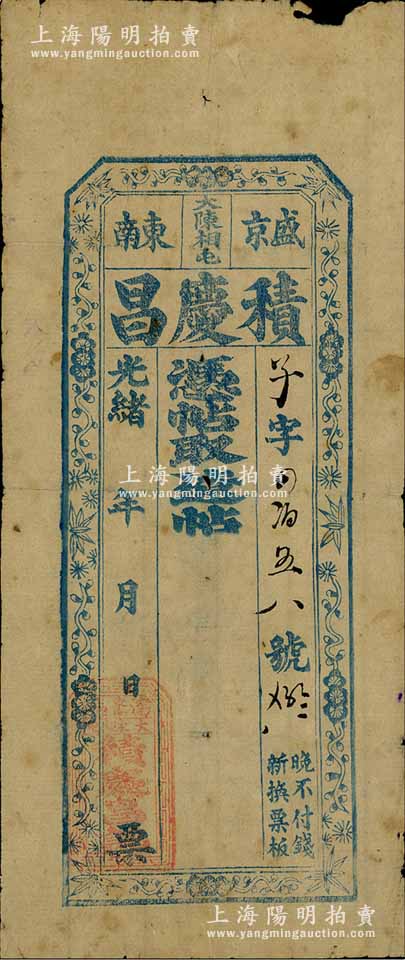 上海陽明拍賣
www.yangmingauction.com
盛京
大陳相屯
東南
積慶昌
字
伍八
號
晚不付錢
新換票板
憑帖取
帖
光緒 年 月 日
票
上海陽明拍賣
www.yangmingauction.com
上海陽明拍賣
www.yangmingauction.com